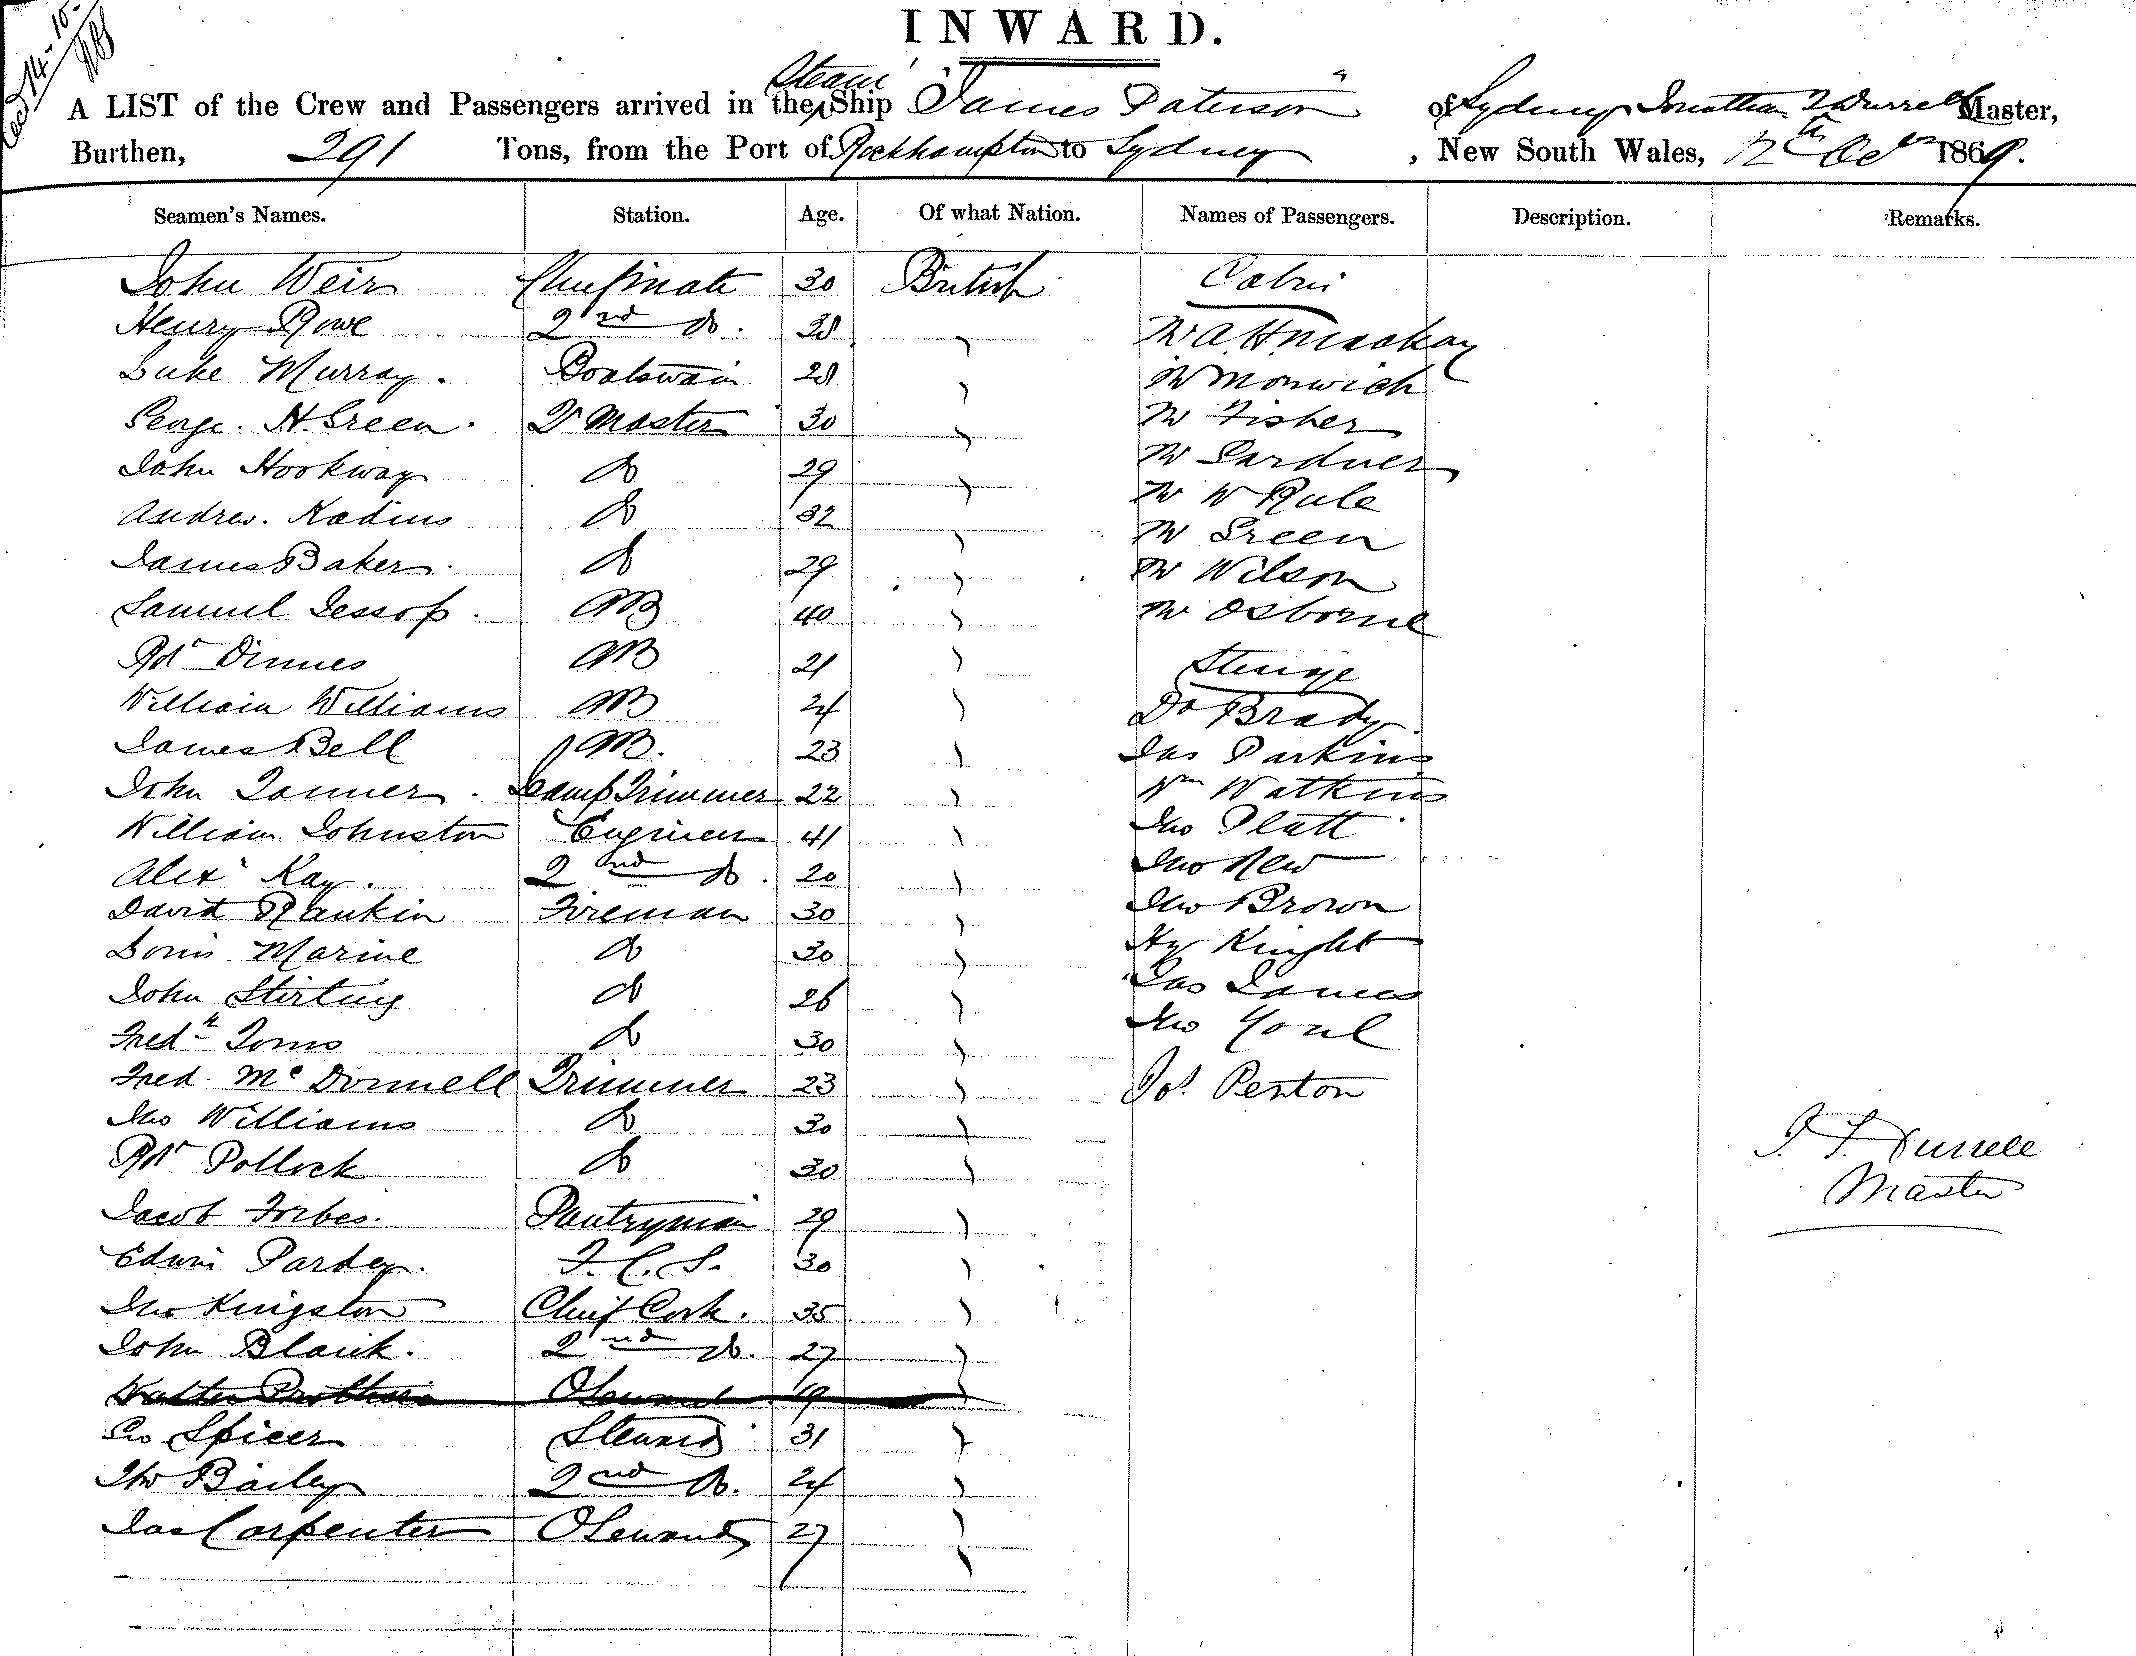 INWARD.
A LIST of the Crew and Passengers arrived in the Steam Ship "James Paterson" of Sydney Jonathan Master,
Burthen, 291 Tons, from the Port of Rockhampton to Sydney, New South Wales, 12th Octr 1869.
Seamen's Names. Station. Age. Of what Nation. Names of Passengers. Description. Remarks.
John Weir Chief mate 30 British Cabin
Henry Rowe 2nd do. 38 Mr A. H. Mackay
Luke Murray. Boatswain 28 Mr Monwich
George. H. Green. Qr Master 30 Mr Fisher
John Hookway do 29 Mr Gardner
Andrew. Kadius do 32 Mr W Rule
Mr Green
James Baker. do 29 Mr Wilson
Samuel Jessop. AB 40 Mr Osborne
Robt Dinnes AB 21 Steerage
William Williams AB 24 Do Brady
James Bell AB. 23 Jas Parkins
John Tanner. Lamp Trimmer 22 Wm Watkins
William Johnston Engineer 41 Jno Platt
Alexr Kay. 2nd do. 20 Jno New
David Rankin Fireman 30 Jno Brown
Marine do 30 Hy Knight
John Stirling do 26 Jas James
Fredk Toms do 30 Jno Youl
Fred. McDonnell Trimmer 23 Jos. Penton
Jno Williams do 30
Robt Pollock do 30 J. F. Durrell
Master
Jacob Forbes. Pantryman 29
Edwin Pardey. F. C. S. 30
Jno Kingston Chief Cook. 35
John Blank. 2nd do. 27
Walter 19
Geo Spicer Steward 31
Thos Bailey 2nd do. 24
Jas Carpenter 27